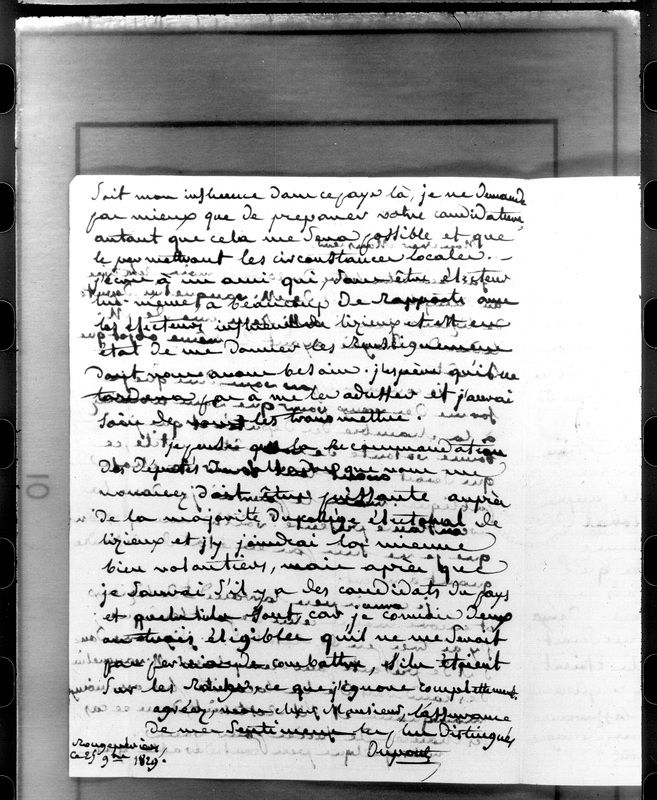 soit mon influence dans ce pays là, je ne demande
pas mieux que de preparer votre candidature
autant que cela me sera possible et que
le permettront les circonstances locales. —
J'écris à un ami qui sans être électeur
lui même a beaucoup de rapports avec
les électeurs de lizieux et est en
état de me donner les renseignemens
dont nous avons besoin. j'espère qu'il ne
tardera pas à me les adresser et j'aurai
soin de vous les transmettre.
Je pense que la recommandation
des députés que vous me
doit être puissante auprès
de la majorité du collège électoral de
lizieux et j'y joindrai la mienne
bien volontiers, mais après que
je saurai s'il y a des candidats du pays
et quels ils sont, car je connais deux
ou trois éligibles qu'il ne me serait
pas permis de combattre, s'ils étoient
sur les rangs, ce que j'ignore complettement.
agréez, mon cher Monsieur, l'assurance
de mes sentimens les plus distingués
Dupont
ce 25 9bre 1829.
10